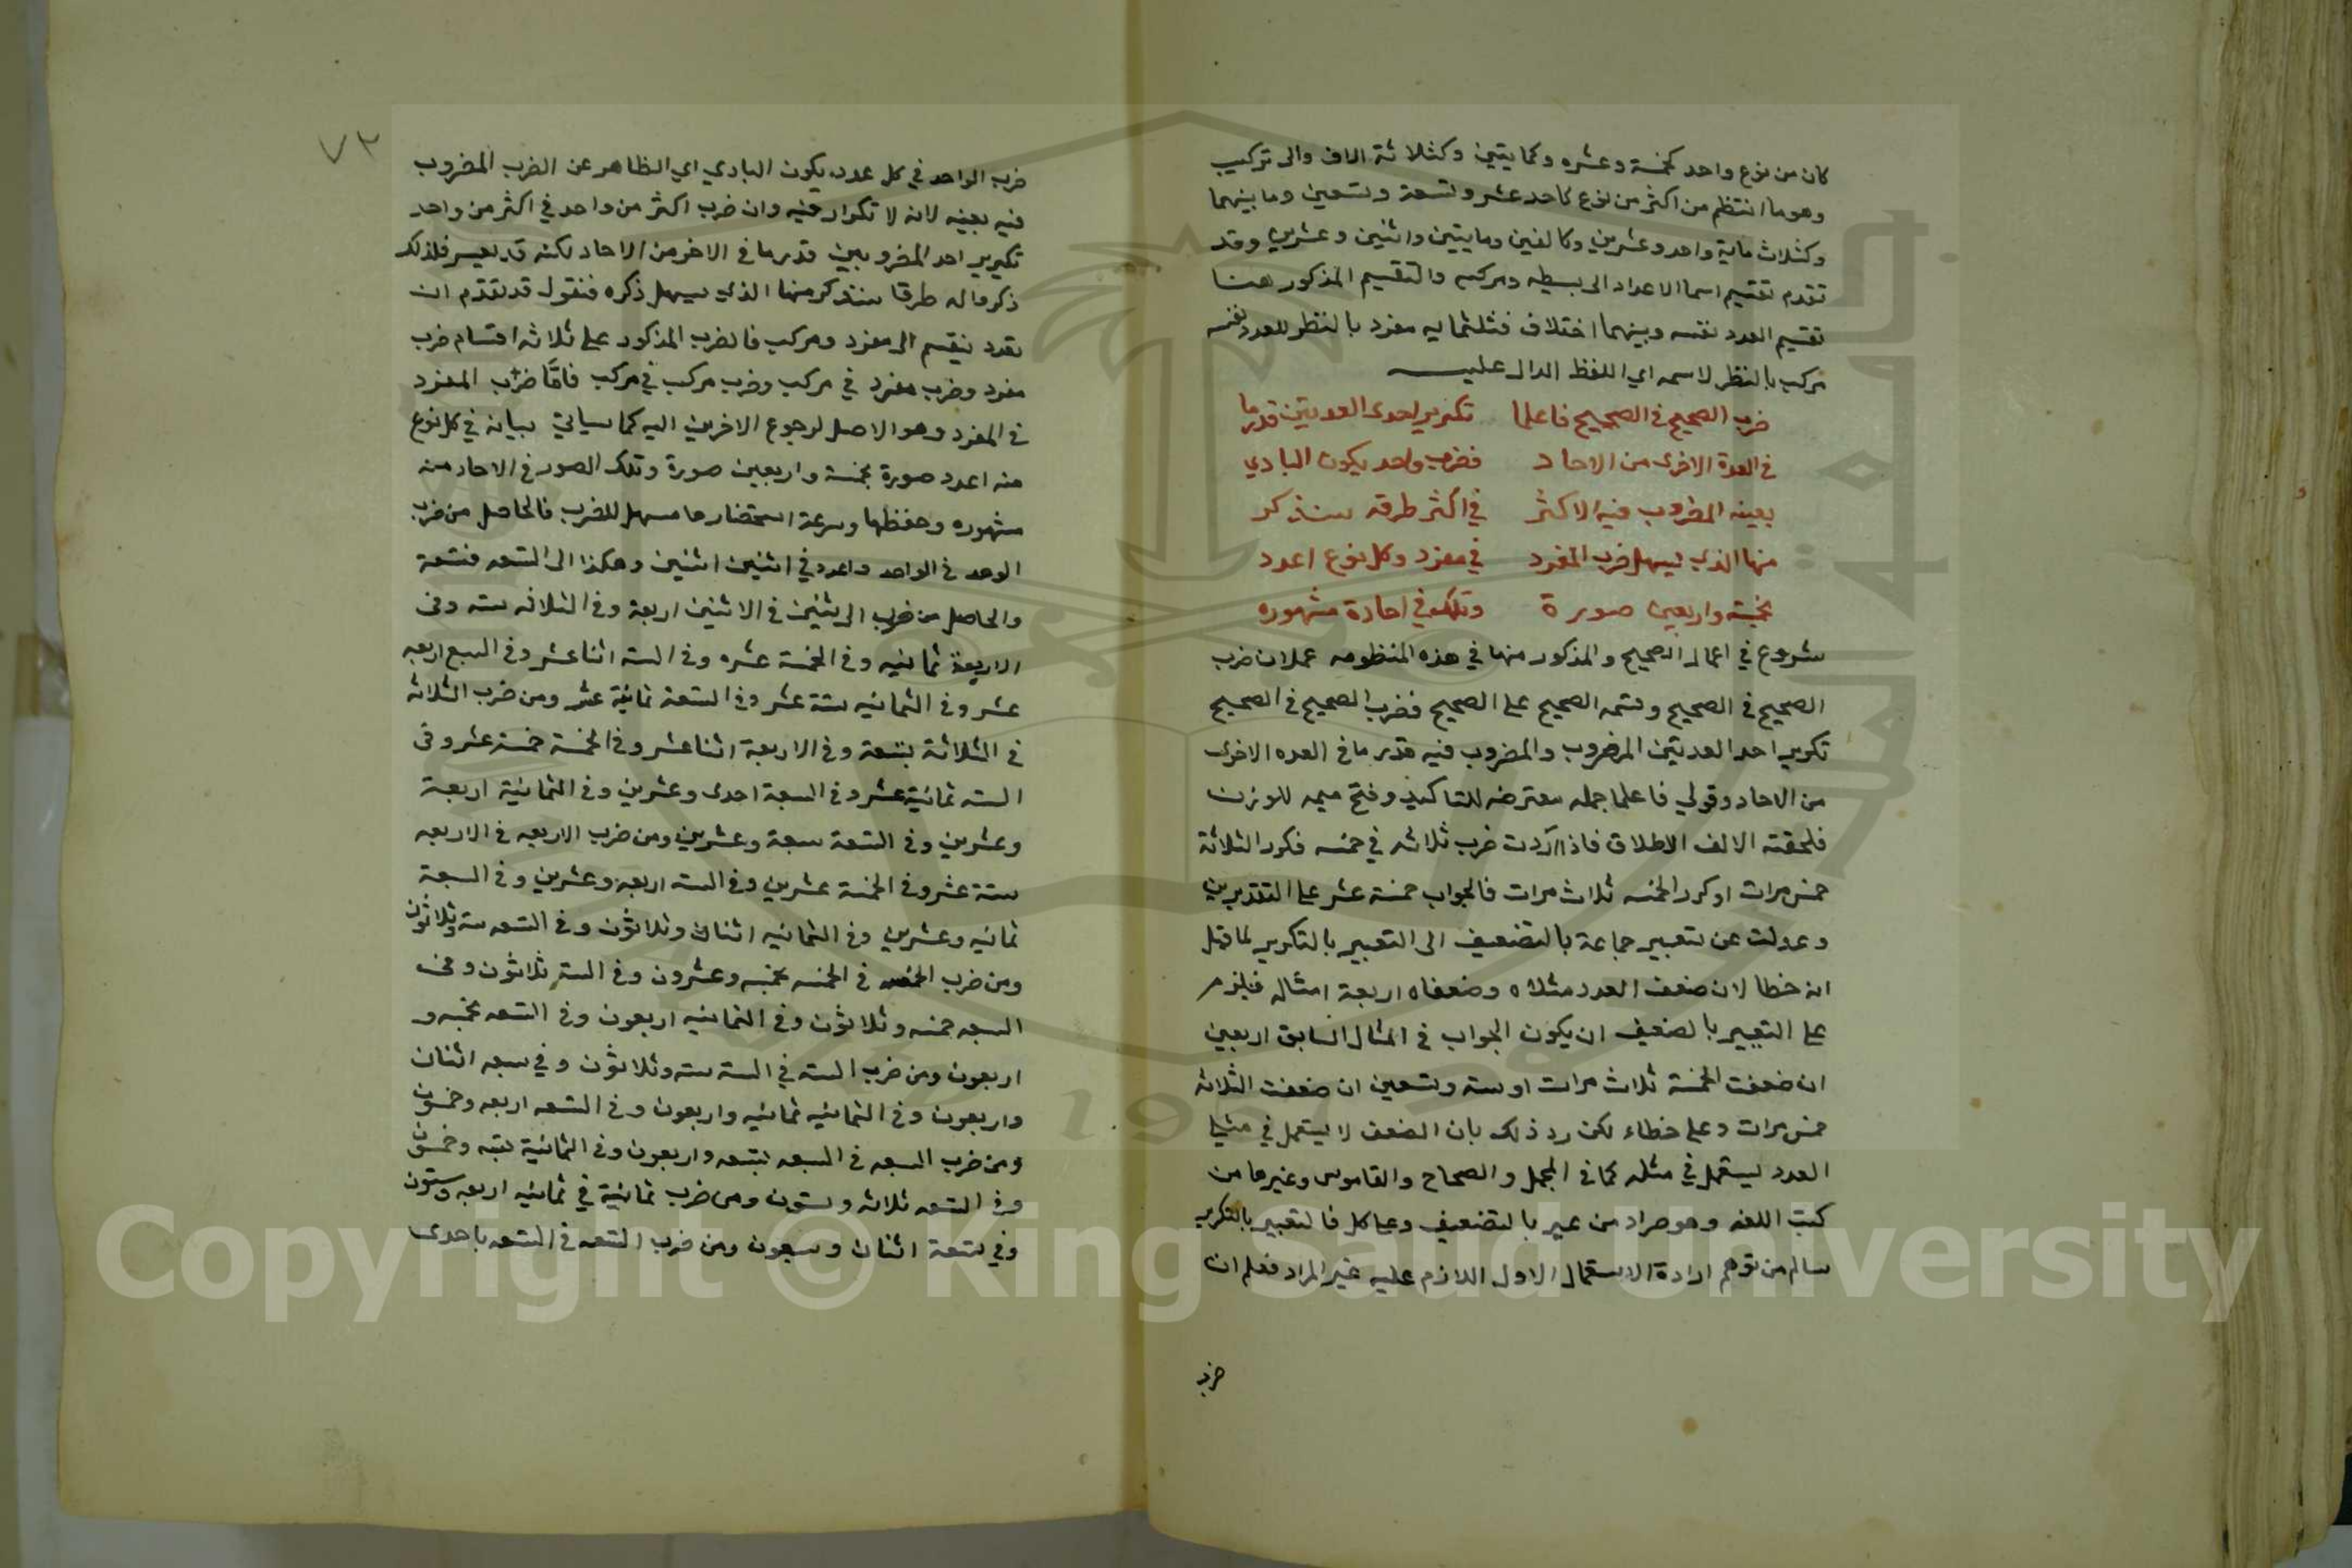 كان من نوع واحد كخمسة وعشره وكمايتين وكثلاثة الاف والى تركيب
وهو ما انتظم من اكثر من نوع كاحد عشر وتسعة وتسعين وما بينهما
وكثلاث ماية واحد وعشرين وكالفين ومايتين واثنين وعشرين وقد
تقدم تقسيم اسما الاعداد الى بسيطه ومركبه والتقسيم المذكور هنا
تقسيم العدد نفسه وبينهما اختلاف فثلثمايه مفرد بالنظر للعدد نفسه
مركب بالنظر لاسمه اي اللفظ الدال عليه
ضرب الصحيح في الصحيح فاعلما تكرير احدى العدتين قدر ما
في العدة الاخرى من الاحاد فضرب واحد يكون البادي
بعينه المضروب فيه الاكثر في اكثر طرقه سنذكر
منها الذي يسهل ضرب المفرد في مفرد وكل نوع اعدد
بخمسة واربعين صورة وتلك في احادة مشهوره
شروع في اعمال الصحيح والمذكور منها في هذه المنظومه عملان ضرب
الصحيح في الصحيح وقسمه الصحيح على الصحيح فضرب الصحيح في الصحيح
تكرير احد العدتين المضروب والمضروب فيه قدر ما في العده الاخرى
من الاحاد وقولي فاعلما جمله معترضه للتاكيد وفتح ميمه للوزن
فلحقته الالف الاطلاق فاذا اردت ضرب ثلاثه في خمسه فكرر الثلاثة
خمس مرات او كرر الخمسه ثلاث مرات فالجواب خمسة عشر على التقديرين
وعدلت عن تعبير جماعة بالتضعيف الى التعبير بالتكرير لما قيل
انه خطا لان ضعف العدد مثلاه وضعفاه اربعة امثاله فيلزم
على التعبير بالضعيف ان يكون الجواب في المثال السابق اربعين
ان ضعفت الخمسة ثلاث مرات او سته وتسعين ان ضعفت الثلاثه
خمس مرات وعلى خطاء لكن رد ذلك بان الضعف لا يستعمل في مثلي
العدد يستعمل في مثله كما في المجمل والصحاح والقاموس وغيرها من
كتب اللغه وهو مراد من عبر بالتضعيف وعلى كل فالتعبير بالتكرير
سالم من توهم ارادة الاستعمال الاول اللازم عليه غير المراد فعلم ان
ضرب
٧٢
ضرب الواحد في كل عدد يكون البادي اي الظاهر عن الضرب المضروب
فيه بعينه لانه لا تكرار فيه وان ضرب اكثر من واحد في اكثر من واحد
تكرير احد المضروبين قدر ما في الاخر من الاحاد لكنه قد يعسر فلذلك
ذكروا له طرقا سنذكر منها الذي يسهل ذكره فنقول قد تقدم ان
العدد ينقسم الى مفرد ومركب فالضرب المذكور على ثلاثه اقسام ضرب
مفرد وضرب مفرد في مركب وضرب مركب في مركب فامّا ضرب المفرد
في المفرد وهو الاصل لرجوع الاخرين اليه كما سياتي بيانه في كل نوع
منه اعدد صورة بخمسة واربعين صورة وتلك الصور في الاحاد منه
مشهوره وحفظها وسرعة استحضارها مسهل للضرب فالحاصل من ضرب
الوحد في الواحد واحد وفي اثنين اثنين وهكذا الى التسعه فتسعة
والحاصل من ضرب الاثنين في الاثنين اربعة وفي الثلاثه سته وفي
الاربعة ثمانيه وفي الخمسة عشره وفي السته اثنا عشر وفي السبع اربعه
عشر وفي الثمانيه ستة عشر وفي التسعة ثمانية عشر ومن ضرب الثلاثه
في الثلاثة بتسعة وفي الاربعة اثنا عشر وفي الخمسة خمسة عشر وفي
السته ثمانية عشر وفي السبعة احدى وعشرين وفي الثمانية اربعة
وعشرين وفي التسعة سبعة وعشرين ومن ضرب الاربعه في الاربعه
ستة عشر وفي الخمسة عشرين وفي السته اربعة وعشرين وفي السبعة
ثمانيه وعشرين وفي الثمانيه اثنان وثلاثون وفي التسعه ستة وثلاثون
ومن ضرب الخمسه في الخمسه بخمسه وعشرون وفي السته ثلاثون وفي
السبعه خمسه وثلاثون وفي الثمانيه اربعون وفي التسعه بخمسه و
اربعون ومن ضرب السته في السته سته وثلاثون وفي سبعه اثنان
واربعون وفي الثمانيه ثمانيه واربعون وفي التسعه اربعه وخمسون
ومن ضرب السبعه في السبعه بتسعه واربعون وفي الثمانية بسته وخمسون
وفي التسعه ثلاثه وستون ومن ضرب ثمانية في ثمانيه اربعه وستون
وفي تسعة اثنان وسبعون ومن ضرب التسعه في التسعه باحدى
Copyright © King Saud University